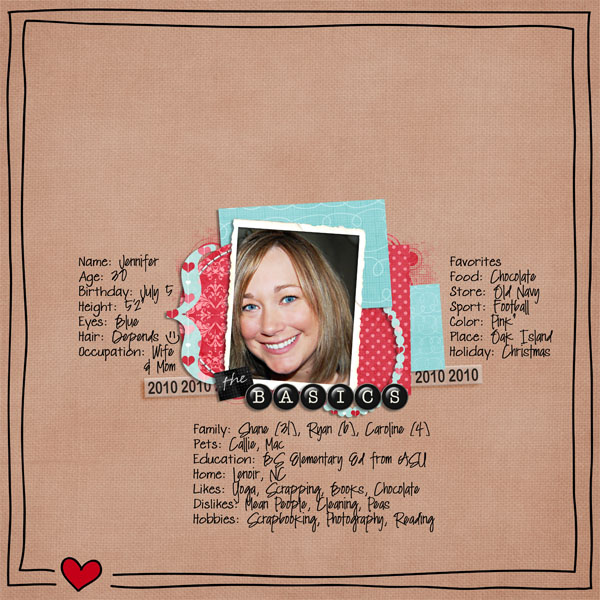 Name: Jennifer
Age: 30
Birthday: July 5
Height: 5'2"
Eyes: Blue
Hair: Depends
Occupation: Wife
& Mom
Favorites
Food: Chocolate
Store: Old Navy
Sport: Football
Color: Pink
Place: Oak Island
Holiday: Christmas
2010 2010
the
BASICS
2010 2010
Family: Shane (31), Ryan (6), Caroline (4)
Pets: Callie, Mac
Education: BS Elementary Ed from ASU
Home: Lenoir, NC
Likes: Yoga, Scrapping, Books, Chocolate
Dislikes: Mean People, Cleaning, Peas
Hobbies: Scrapbooking, Photography, Reading